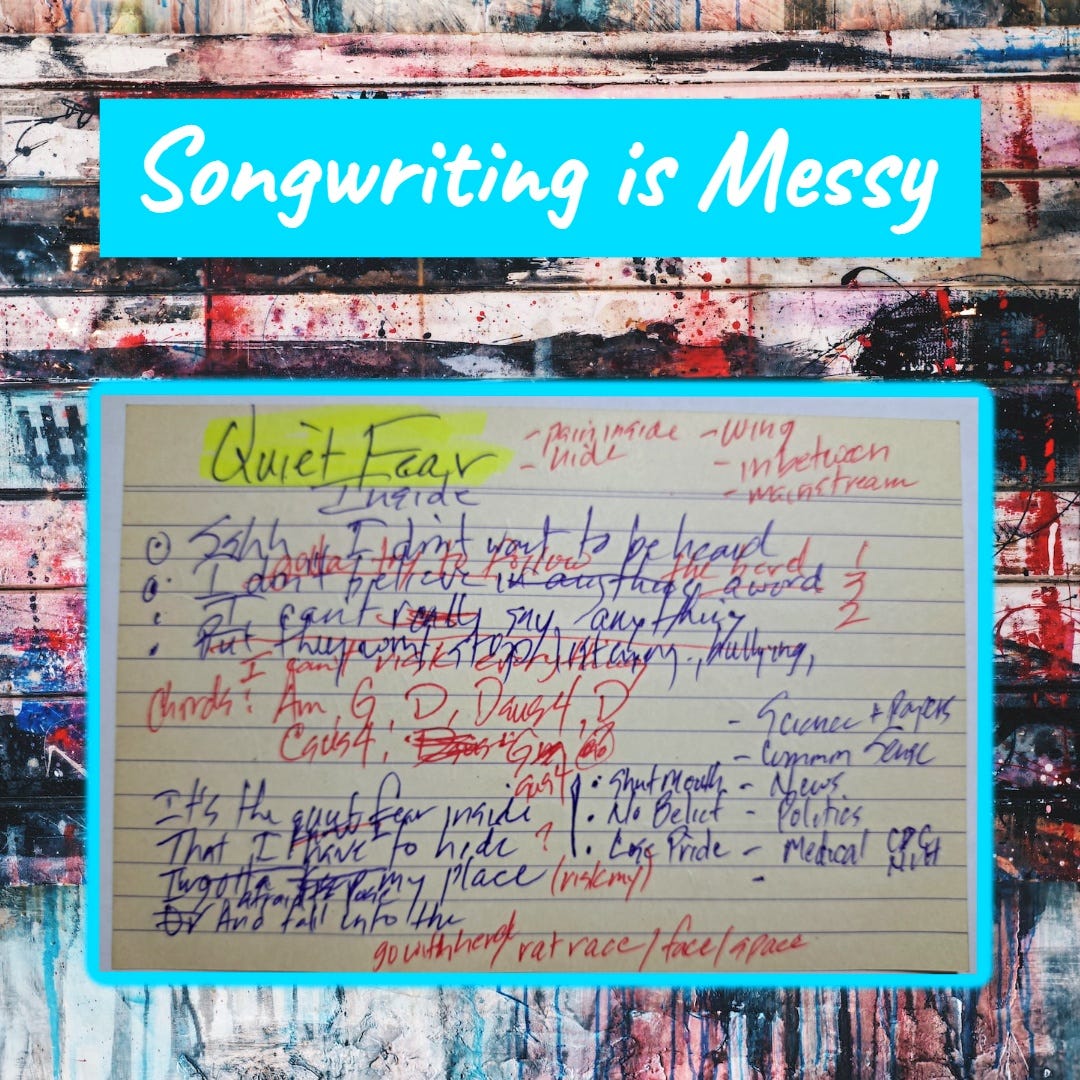 Songwriting is Messy
Quiet Fear
Inside
- pain inside
- hide
- wing
- inbetween
- mainstream
Sshh I didn't want to be heard
gotta try to follow the herd 1
I don't believe in anything a word 3
I can't really say anything 2
But they won't stop bullying,
I can't risk everything
Chords: Am, G, D, Dsus4, D
Csus4, G
- Science + Papers
- Common Sense
• Shut Mouth - News
• No Belief - Politics
• Lose Pride - Medical CDC
NIH
It's the quiet fear inside
That I have to hide ?
I gotta my place (risk my)
afraid
Or And fall into the
go with herd rat race / face / space